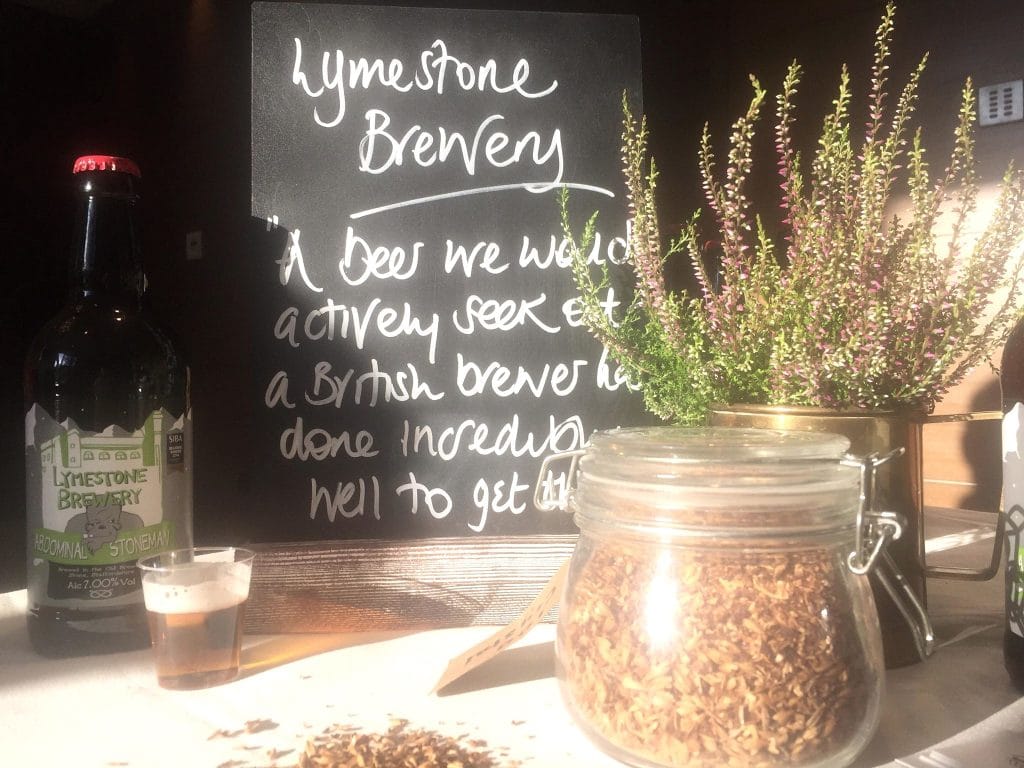 Lymestone
Brewery
"A beer we would
actively seek out
a British brewer ha
done incredibly
well to get th
LYMESTONE
BREWERY
ABDOMINAL STONEMAN
Brewed in the Old Brewery
Stone,
Alc 7.00% Vol
SIBA